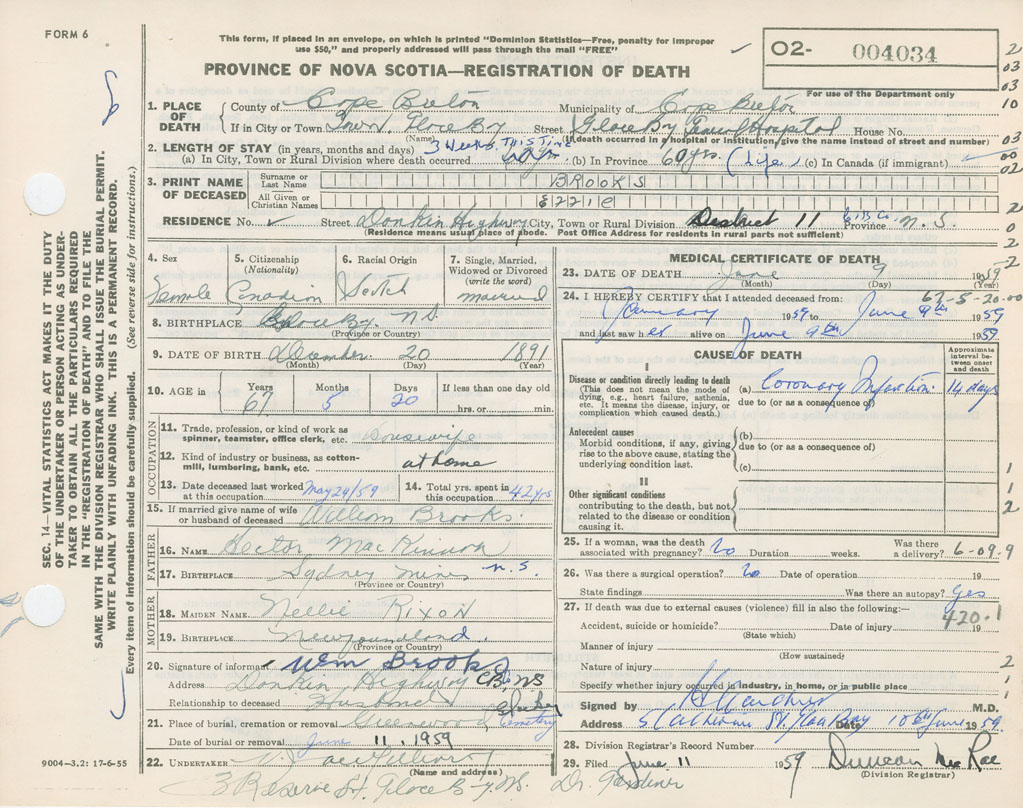 FORM 6
This form, if placed in an envelope, on which is printed "Dominion Statistics—Free, penalty for improper
use $50," and properly addressed will pass through the mail "FREE"
O2- 004034
For use of the Department only
PROVINCE OF NOVA SCOTIA—REGISTRATION OF DEATH
SEC. 14 VITAL STATISTICS ACT MAKES IT THE DUTY
OF THE UNDERTAKER OR PERSON ACTING AS UNDER-
TAKER TO OBTAIN ALL THE PARTICULARS REQUIRED
IN THE "REGISTRATION OF DEATH" AND TO FILE THE
SAME WITH THE DIVISION REGISTRAR WHO SHALL ISSUE THE BURIAL PERMIT.
WRITE PLAINLY WITH UNFADING INK. THIS IS A PERMANENT RECORD.
Every item of information should be carefully supplied. (See reverse side for instructions.)
1. PLACE OF DEATH County of Cape Breton Municipality of Cape Breton
If in City or Town Town, Glace Bay Street Glace Bay General Hospital House No.
(Name) (If death occurred in a hospital or institution, give the name instead of street and number)
2. LENGTH OF STAY (in years, months and days) 3 weeks THIS TIME
(a) In City, Town or Rural Division where death occurred (b) In Province 60 yrs. (Life) (c) In Canada (if immigrant)
3. PRINT NAME OF DECEASED
Surname or Last Name BROOKS
All Given or Christian Names
RESIDENCE No. Street Donkin Highway City, Town or Rural Division District 11 C.B. Co. Province N.S.
(Residence means usual place of abode. Post Office Address for residents in rural parts not sufficient)
4. Sex Female
5. Citizenship (Nationality) Canadian
6. Racial Origin Scotch
7. Single, Married, Widowed or Divorced (write the word) married
8. BIRTHPLACE Glace Bay N.S.
(Province or Country)
9. DATE OF BIRTH December 20 1891
(Month) (Day) (Year)
10. AGE in Years 67 Months 5 Days 20 If less than one day old hrs. or min.
OCCUPATION
11. Trade, profession, or kind of work as
spinner, teamster, office clerk, etc. Housewife
12. Kind of industry or business, as cotton-
mill, lumbering, bank, etc. at home
13. Date deceased last worked at this occupation May 24/59 14. Total yrs. spent in this occupation 42 yrs
15. If married give name of wife or husband of deceased William Brooks.
FATHER
16. NAME Hector MacKinnon
17. BIRTHPLACE Sydney Mines N.S.
(Province or Country)
MOTHER
18. MAIDEN NAME Nellie Rixon
19. BIRTHPLACE Newfoundland
(Province or Country)
20. Signature of informant Wm Brooks
Address Donkin Highway CB NS
Relationship to deceased Husband
21. Place of burial, cremation or removal Greenwood Cemetery Glace Bay
Date of burial or removal June 11, 1959
22. UNDERTAKER
(Name and address)
3 Reserve St. Glace Bay N.S. Dr. Gardiner
9004—3.2: 17-6-55
MEDICAL CERTIFICATE OF DEATH
23. DATE OF DEATH June 9 1959
(Month) (Day) (Year)
24. I HEREBY CERTIFY that I attended deceased from: 67-5-20-00
January 1959 to June 9th 1959
and last saw her alive on June 9th 1959
CAUSE OF DEATH
Approximate interval between onset and death
I
Disease or condition directly leading to death
(This does not mean the mode of dying, e.g., heart failure, asthenia, etc. It means the disease, injury, or complication which caused death.)
(a) Coronary Infarction. 14 days
due to (or as a consequence of)
Antecedent causes
Morbid conditions, if any, giving rise to the above cause, stating the underlying condition last.
(b)
due to (or as a consequence of)
(c)
II
Other significant conditions
contributing to the death, but not related to the disease or condition causing it.
25. If a woman, was the death associated with pregnancy? No Duration weeks. Was there a delivery? 6-09.9
26. Was there a surgical operation? No Date of operation 19
State findings Was there an autopsy? Yes
27. If death was due to external causes (violence) fill in also the following:—
420.1
Accident, suicide or homicide? Date of injury 19
(State which)
Manner of injury
(How sustained)
Nature of injury
Specify whether injury occurred in industry, in home, or in public place
Signed by M.D.
Address S Catherine St. Glace Bay Date 10th June 1959
28. Division Registrar's Record Number
29. Filed June 11 1959 Duncan MacRae
(Division Registrar)
2
03
03
10
03
00
02
2
0
2
2
1
1
2
2
1
1